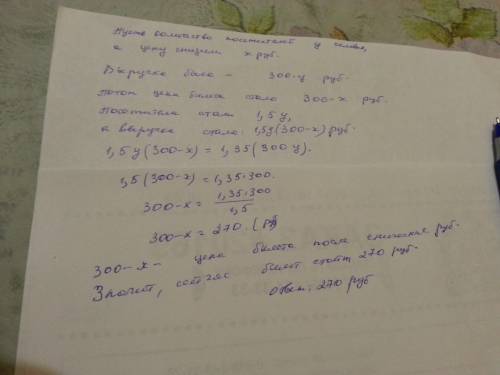 Пусть количество посетителей y человек,
а цену снизили x руб.
Выручка была – 300·y руб.
Потом цена билета стала 300-x руб.
Посетителей стало 1,5 y,
а выручка стала: 1,5y(300-x) руб.
1,5 y(300-x) = 1,35(300 y).
1,5(300-x) = 1,35·300.
300-x = 1,35·300 / 1,5
300-x = 270. (руб)
300-x – цена билета после снижения руб.
Значит, сейчас билет стоит 270 руб.
Ответ: 270 руб